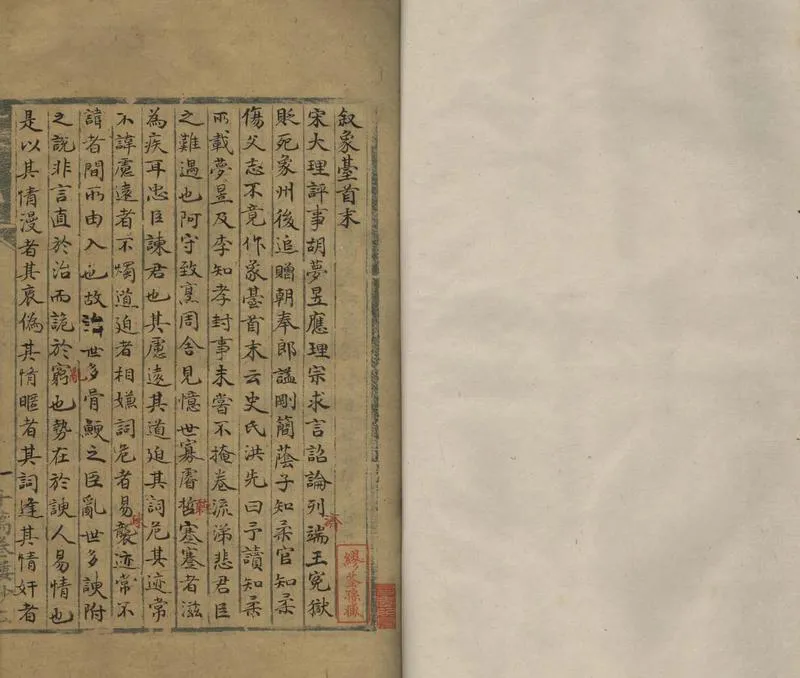 叙象䑓首末
宋大理評事胡夢昱應理宗求言詔論列端王冤獄
貶死象州後追贈朝奉郎諡剛簡蔭子知柔官知柔
傷父志不竟作象䑓首末云史氏洪先曰予讀知柔
所載夢昱及李知孝封事未嘗不掩卷流涕悲君臣
之難遇也阿守致烹周舍見憶世寡睿哲蹇蹇者滋
為疾耳忠臣諫君也其慮遠其道迫其詞危其迹常
不諱慮遠者不燭道迫者相嫌詞危者易襲迹常不
諱者間所由入也故治世多骨鯁之臣亂世多諛附
之說非言直於治而詭於窮也勢在於諛人易情也
是以其情漫者其哀偽其情暱者其詞逢其情奸者